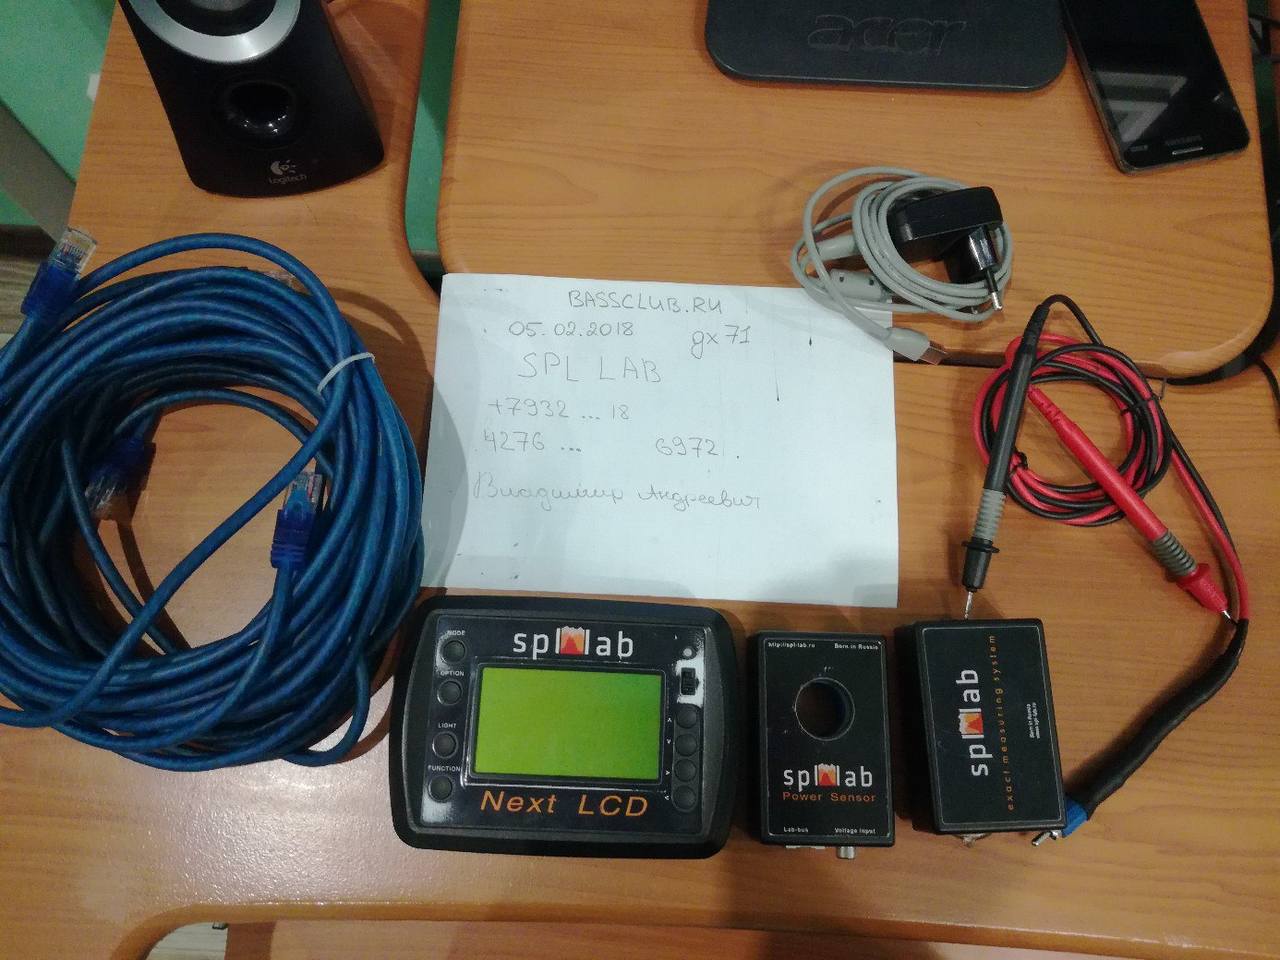 acer
SAMSUNG
Logitech
BASSCLUB.RU
05.02.2018 gx71
SPL LAB
+7932 ... 18
4276 ... 6972.
Владимир Андреевич
MODE
OPTION
LIGHT
FUNCTION
spl lab
Next LCD
http://spl-lab.ru Born in Russia
spl lab
Power Sensor
Lab-bus Voltage Input
spl lab
exact measuring system
Born in Russia
www.spl-lab.ru